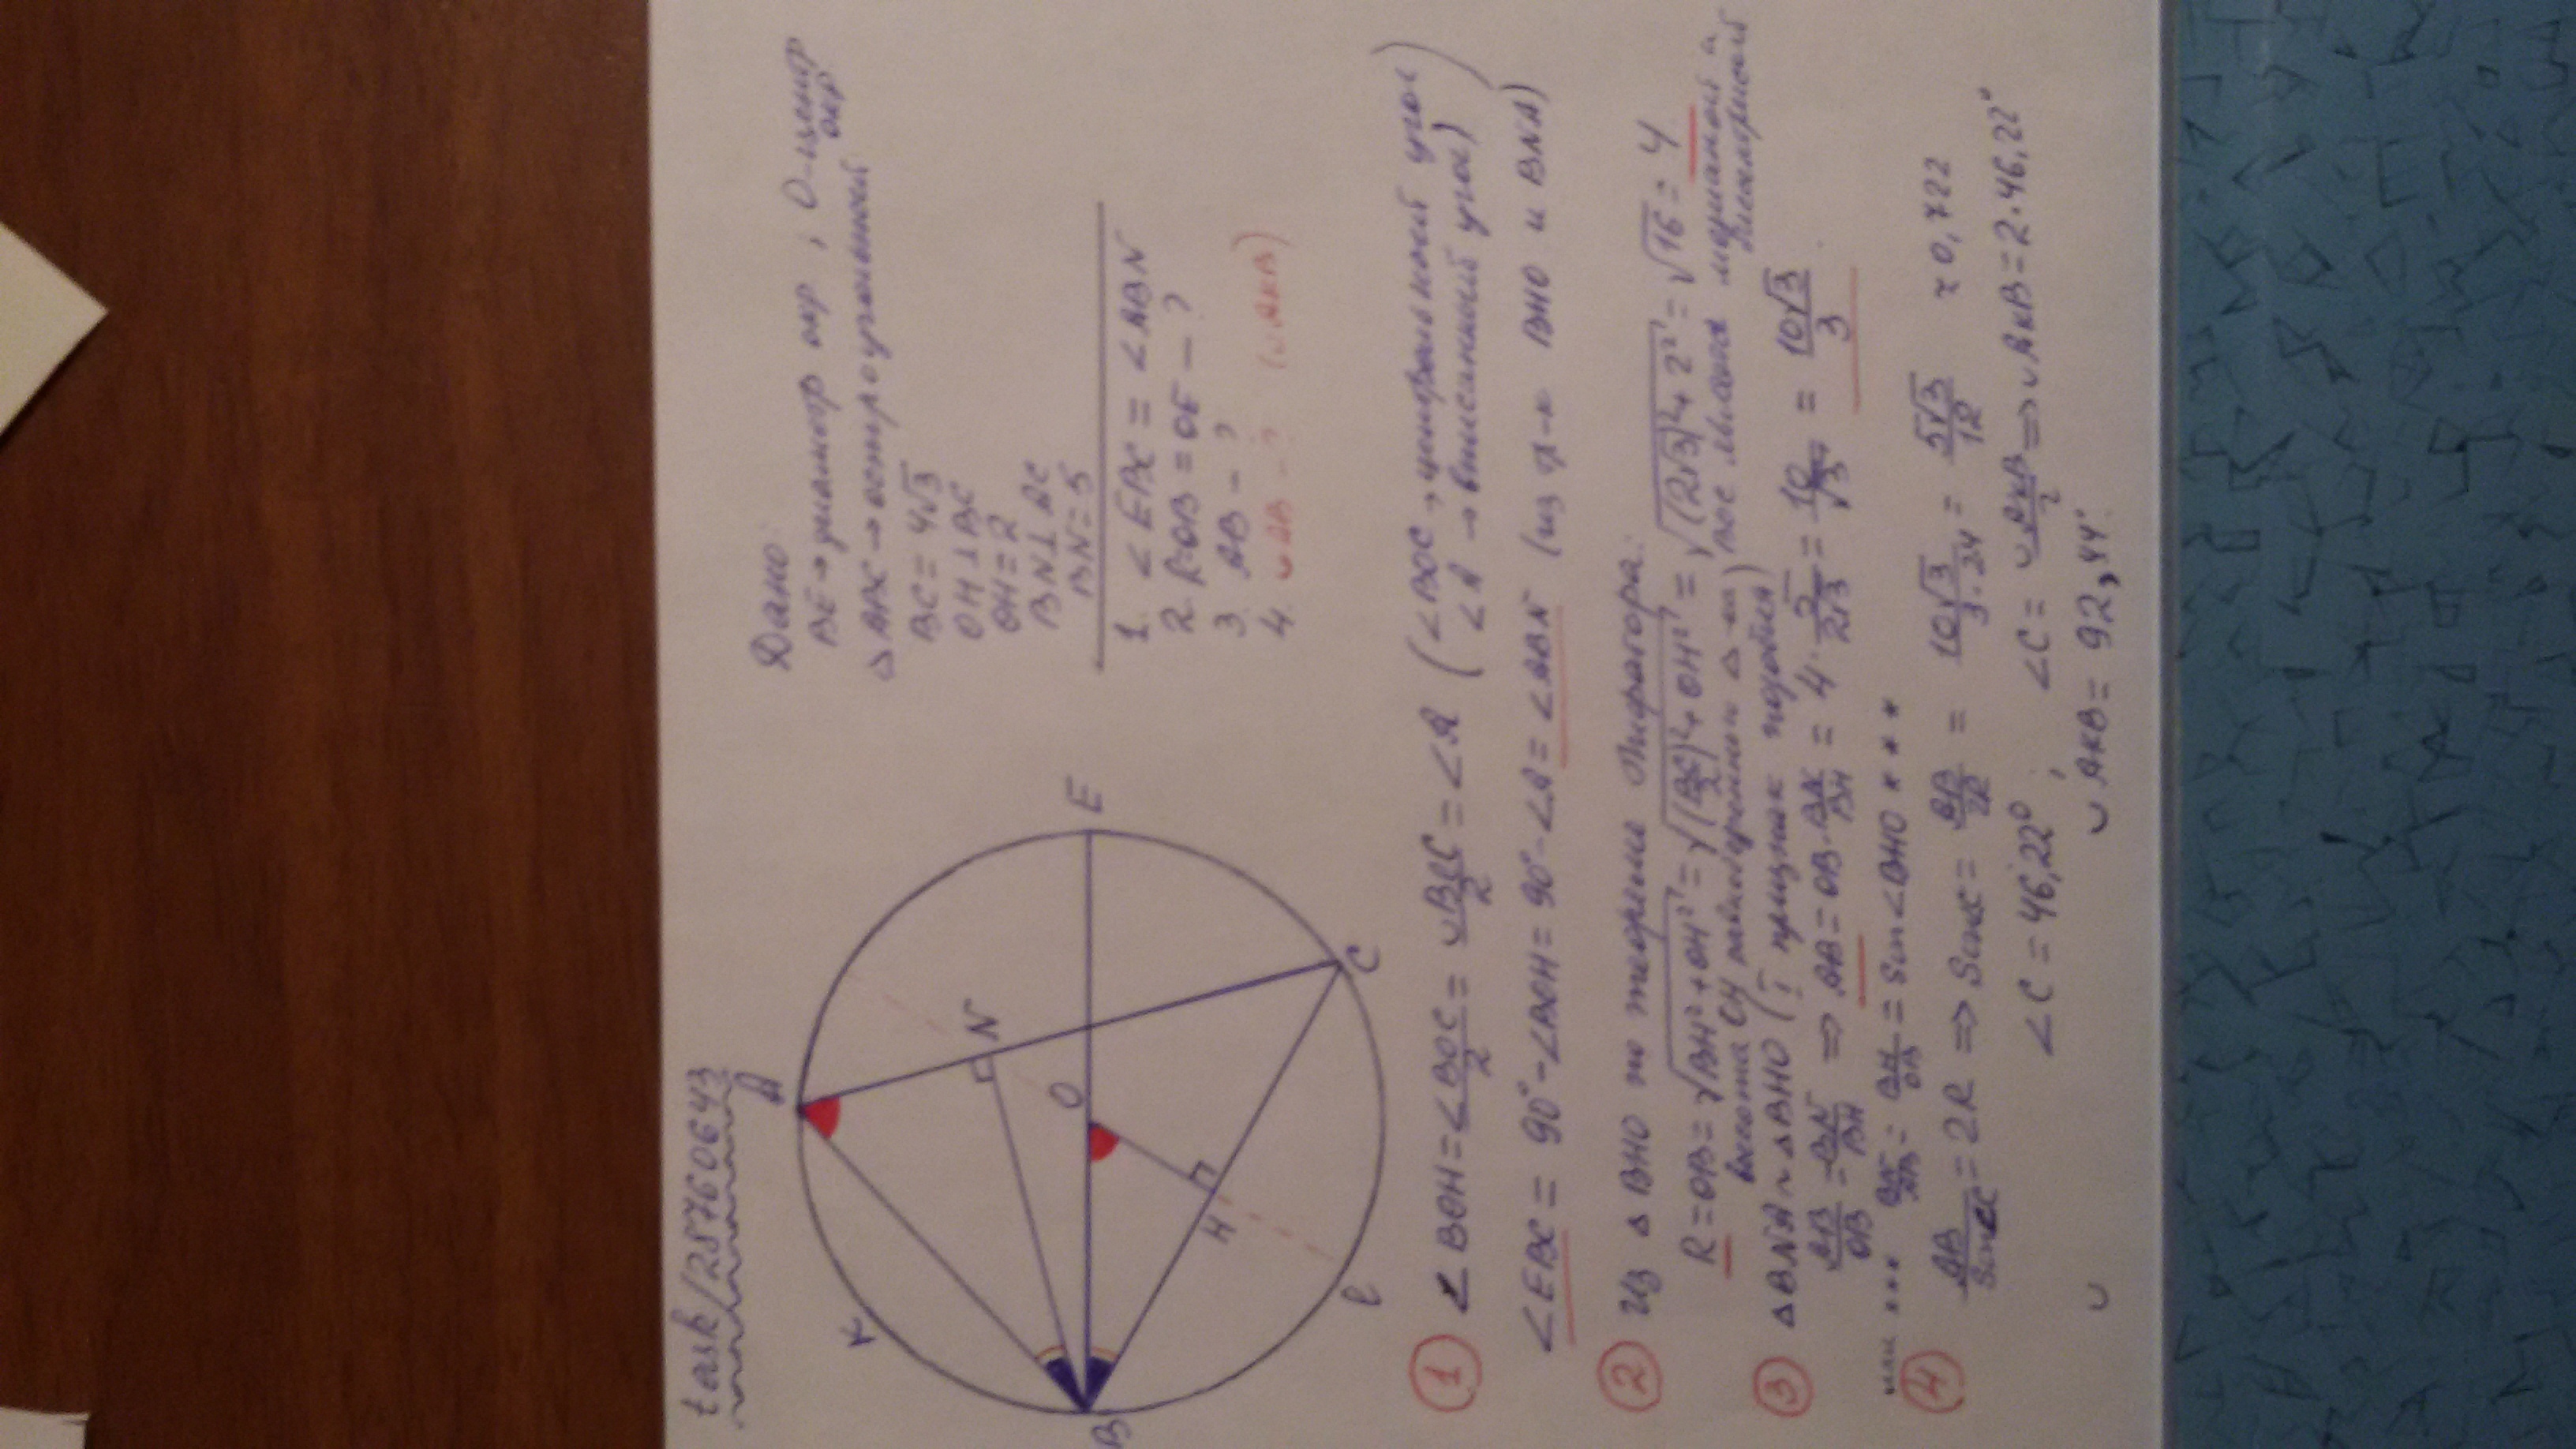 task/28760643
Дано:
BE → диаметр окр ; O - центр окр
△ ABC → остроугольный
BC = 4√3
OH ⊥ BC
OH = 2
BN ⊥ AC
BN = 5
1. ∠EBC = ∠ABN
2. R = OB = OE — ?
3. AB — ?
4. ∪AB — ? (∪AKB)
A
K
N
E
O
B
H
C
l
① ∠BOH = ∠BOC/2 = ∪BlC/2 = ∠A (∠BOC → центральный угол
∠A → вписанный угол)
∠EBC = 90° - ∠BOH = 90° - ∠A = ∠ABN (из п-к BHO и BNA)
② Из △ BHO по теореме Пифагора:
R = OB = √(BH² + OH²) = √((BC/2)² + OH²) = √((2√3)² + 2²) = √16 = 4
высота OH равнобедренного △-ка) BOC является медианой и биссектрисой
③ △BNA ~ △BHO (I признак подобия)
AB/OB = BN/BH ⇒ AB = OB · BN/BH = 4 · 5/2√3 = 10/√3 = 10√3/3
или *** BN/AB = BH/OB = Sin∠BHO ***
④ AB/SinC = 2R ⇒ SinC = AB/2R = 10√3/3·24 = 5√3/12 ≈ 0,722
∠C = 46,22° ; ∠C = ∪AKB/2 ⇒ ∪AKB = 2·46,22°
∪ ∪AKB = 92,44°.